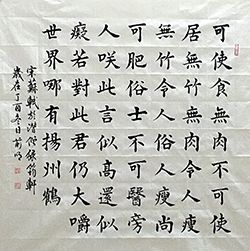 可使食無肉不可使
居無竹無肉令人瘦
無竹令人俗人瘦尚
可肥俗士不可醫傍
人咲此言似高還似
癡若對此君仍大嚼
世界哪有揚州鶴
宋蘇軾於潛僧綠筠軒
歲在丁酉冬日